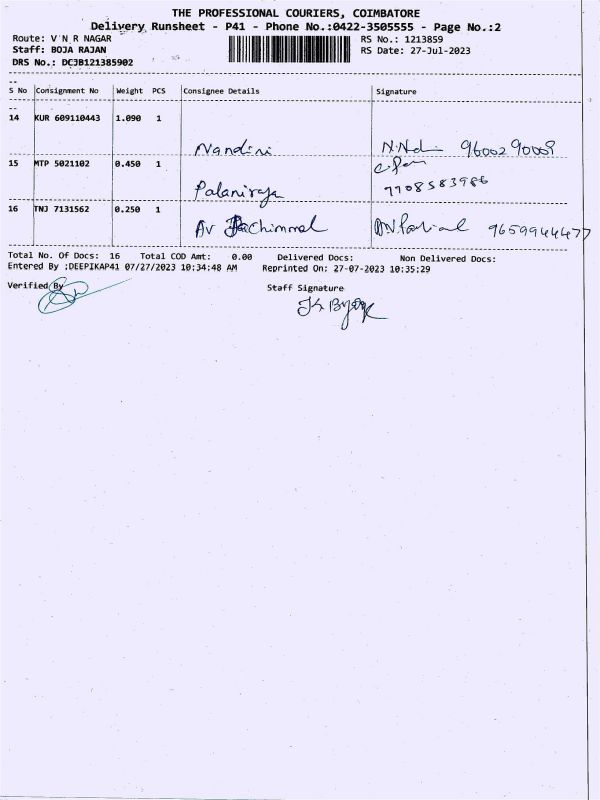 THE PROFESSIONAL COURIERS, COIMBATORE
Delivery Runsheet - P41 - Phone No.:0422-3505555 - Page No.:2
Route: V N R NAGAR RS No.: 1213859
Staff: BOJA RAJAN RS Date: 27-Jul-2023
DRS No.: DCJB121385902
S No Consignment No Weight PCS Consignee Details Signature
14 KUR 609110443 1.090 1
Nandini 9600290009
15 MTP 5021102 0.450 1
Palaniraja 7708583986
16 TNJ 7131562 0.250 1
AV 9659944477
Total No. Of Docs: 16 Total COD Amt: 0.00 Delivered Docs: Non Delivered Docs:
Entered By :DEEPIKAP41 07/27/2023 10:34:48 AM Reprinted On: 27-07-2023 10:35:29
Verified By Staff Signature